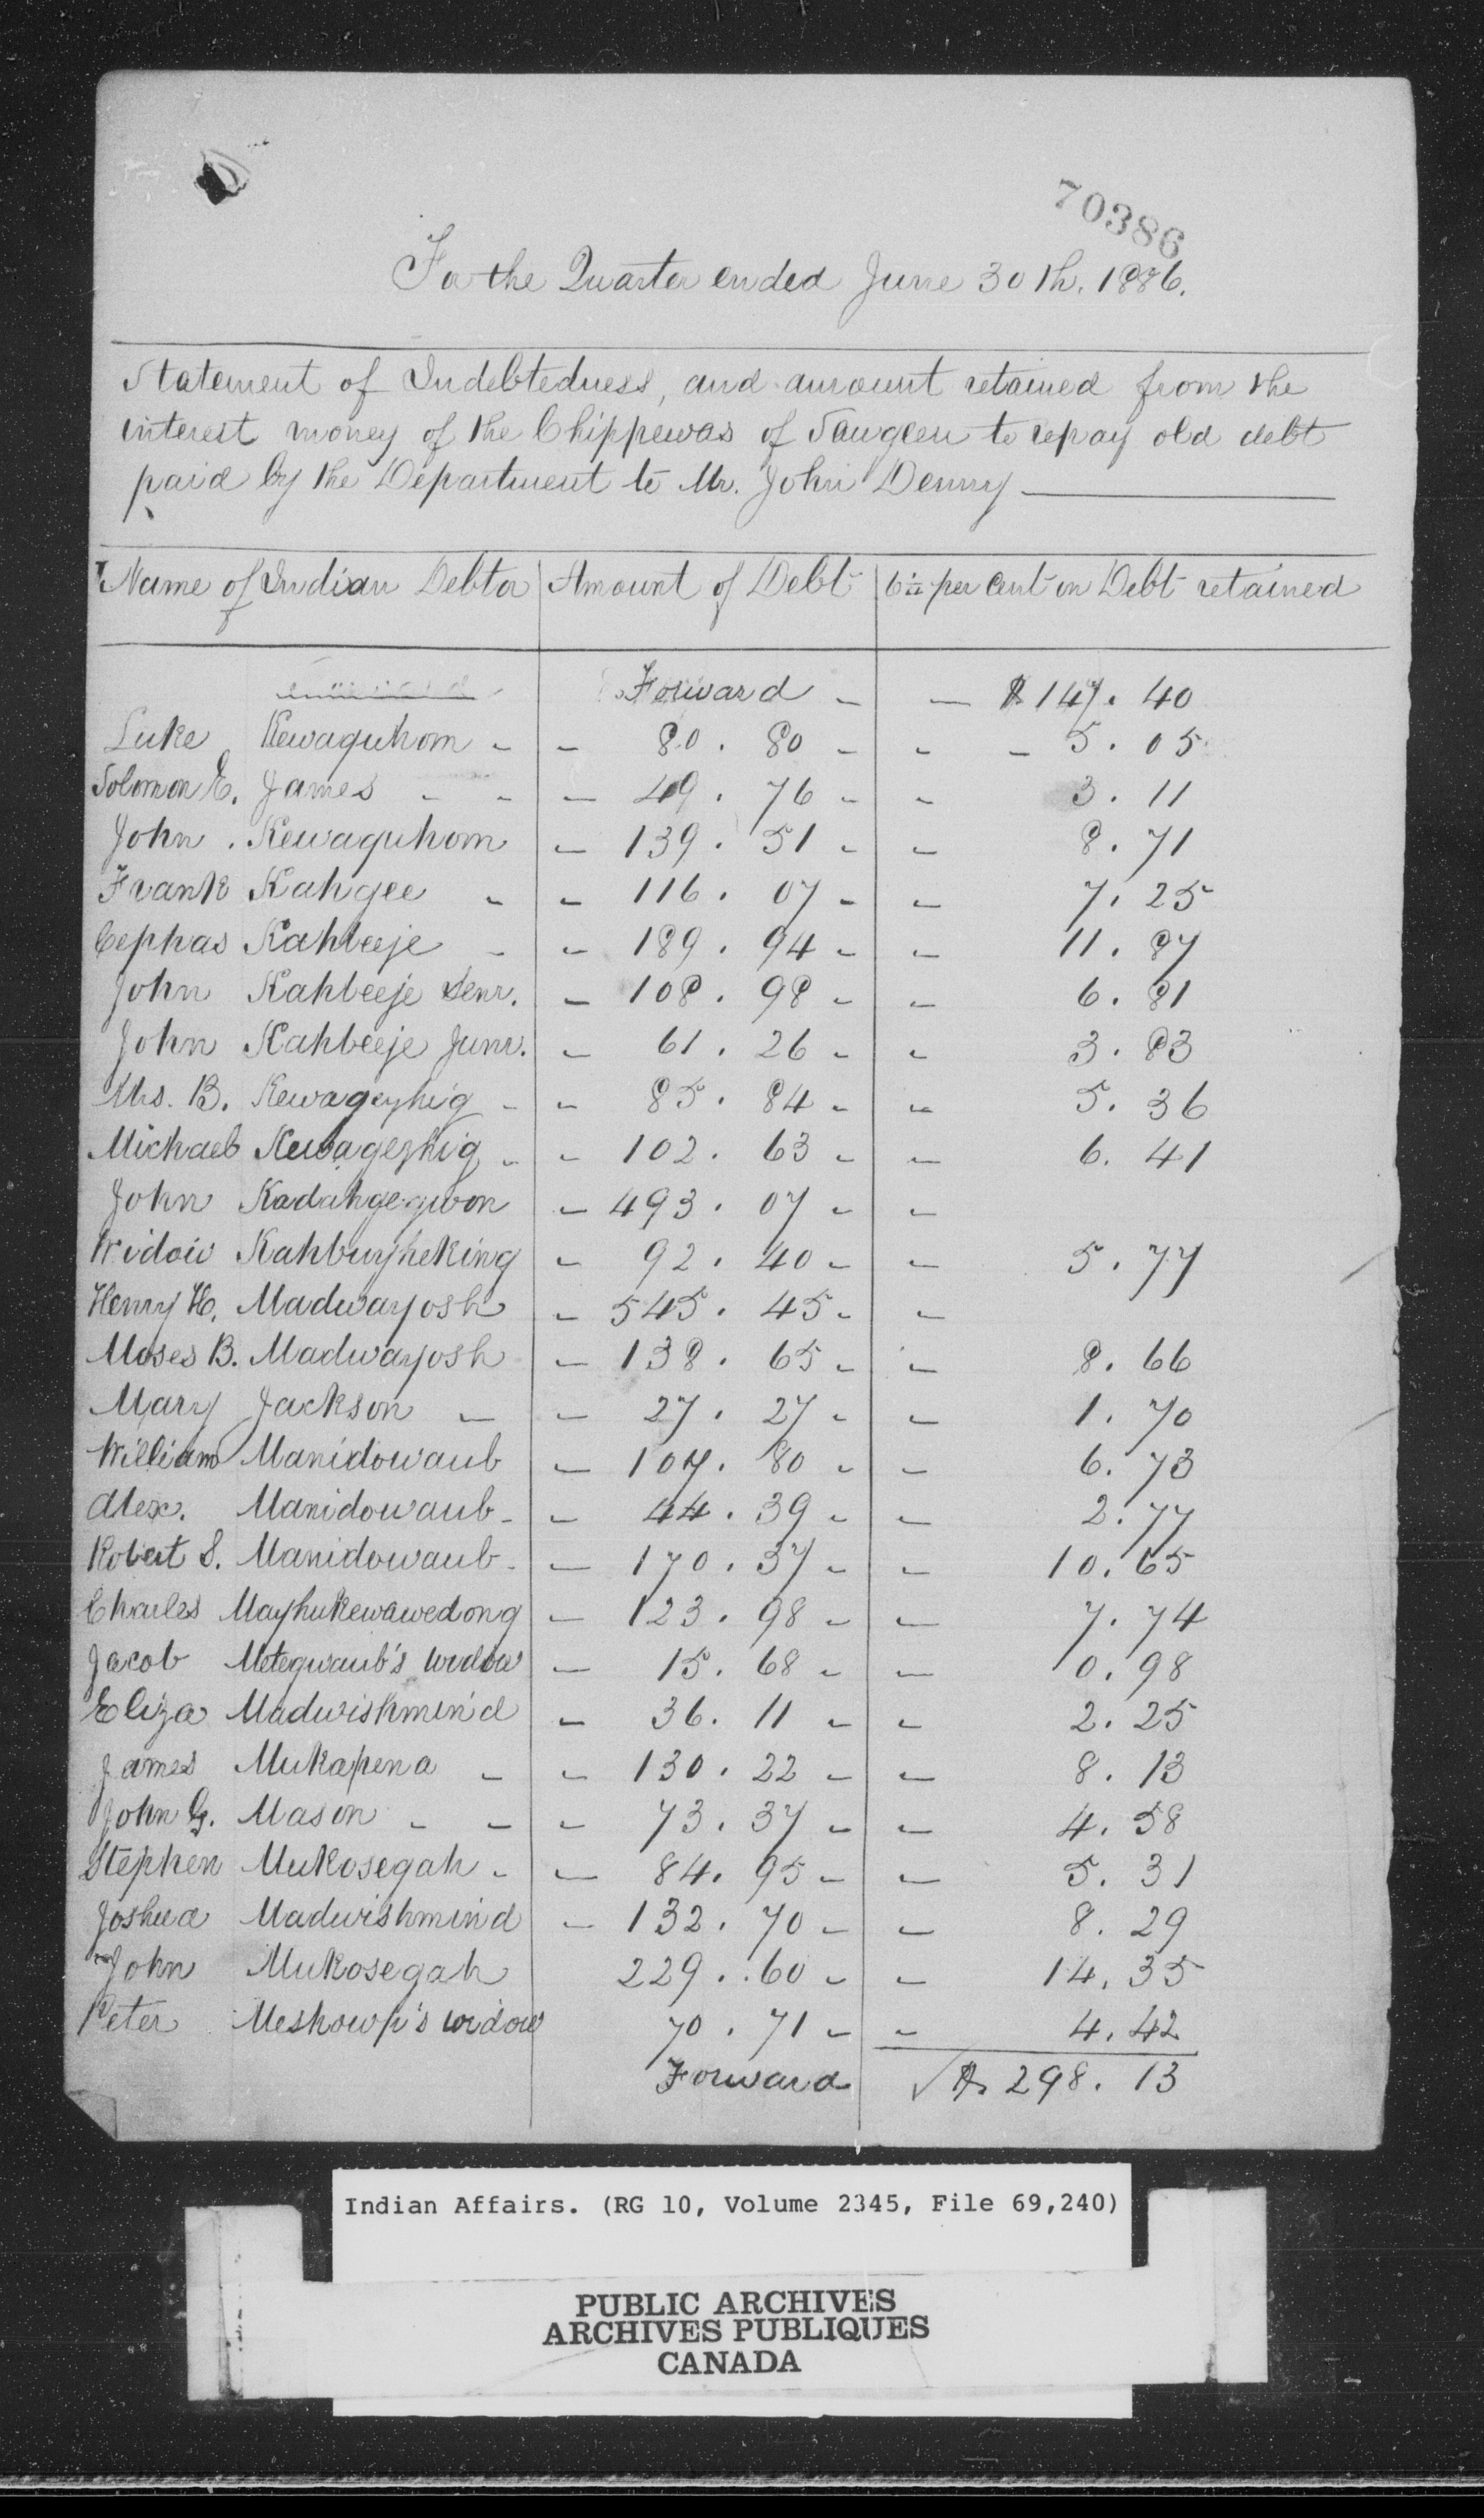 70386
For the Quarter ended June 30th. 1886.
Statement of Indebtedness, and amount retained from the
interest money of the Chippewas of Saugeen to repay old debt
paid by the Department to Mr. John Denny
Name of Indian Debtor Amount of Debt 6¼ per cent on Debt retained
Forward - - $147.40
Luke Kewaquhom - - 80.80 - - - 5.05
Solomon E. James - - - 49.76 - - 3.11
John . Kewaquhom - 139.51 - - 8.71
Frank Kahgee - - 116.07 - - 7.25
Cephas Kahbeeje - - 189.94 - - 11.87
John Kahbeeje Senr. - 108.98 - - 6.81
John Kahbeeje Junr. - 61.26 - - 3.83
Mrs. B. Kewageyhig - - 85.84 - - 5.36
Michael Kewagezhig - - 102.63 - - 6.41
John Kadahgegwon - 493.07 - -
Widow Kahbuyheking - 92.40 - - 5.77
Henry H. Madwayosh - 545.45 - -
Moses B. Madwayosh - 138.65 - - 8.66
Mary Jackson - - 27.27 - - 1.70
William Manidowaub - 107.80 - - 6.73
Alex. Manidowaub - - 44.39 - - 2.77
Robert S. Manidowaub - - 170.37 - - 10.65
Charles Mayhukewawedong - 123.98 - - 7.74
Jacob Metegwaub's widow - 15.68 - - 0.98
Eliza Madwishmind - 36.11 - - 2.25
James Mukapena - - 130.22 - - 8.13
John G. Mason - - - 73.37 - - 4.58
Stephen Mukosegah - - 84.95 - - 5.31
Joshua Madwishmind - 132.70 - - 8.29
John Mukosegah 229.60 - - 14.35
Peter Meshowp's widow 70.71 - - 4.42
Forward √ $298.13
Indian Affairs. (RG 10, Volume 2345, File 69,240)
PUBLIC ARCHIVES
ARCHIVES PUBLIQUES
CANADA